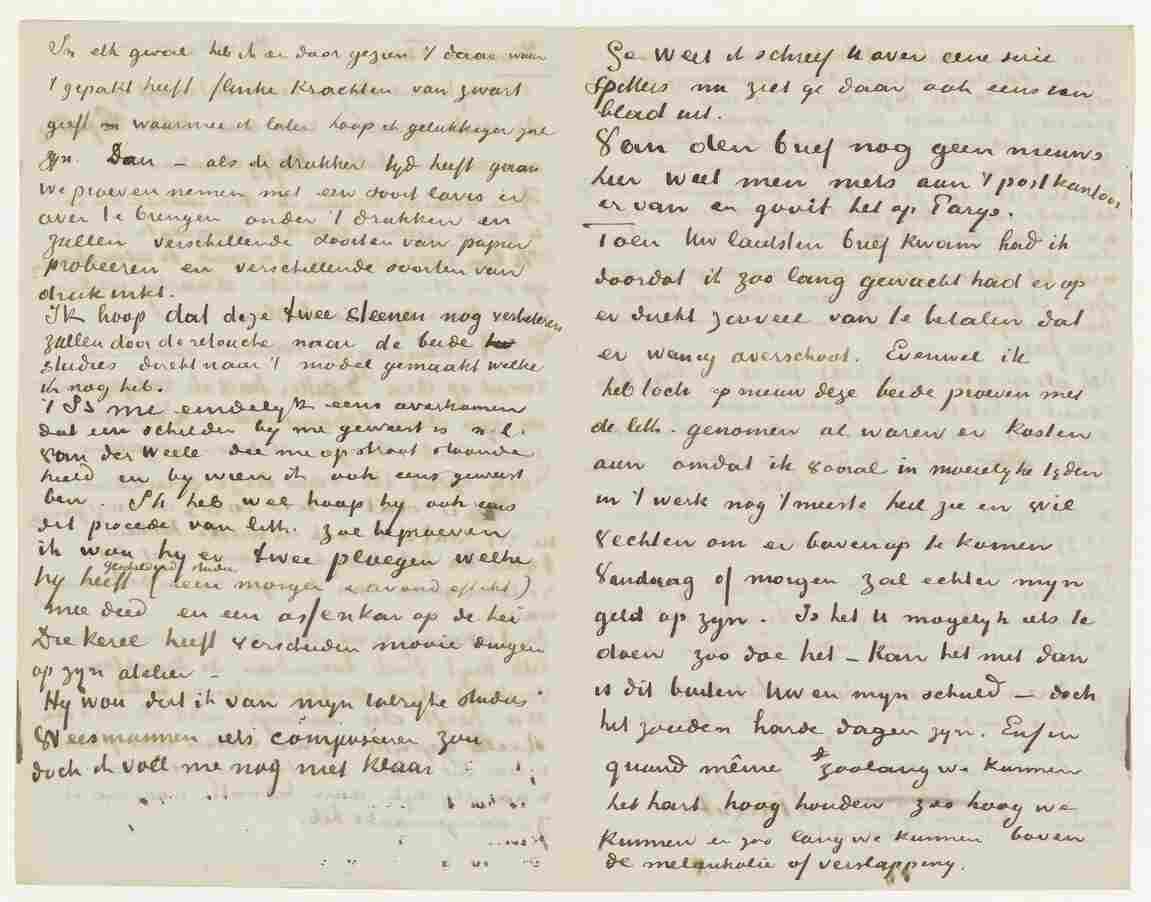 In elk geval heb ik er door gezien 't daar waar
't gepakt heeft flinke krachten van zwart
geeft waarmee ik later hoop ik gelukkiger zal
zyn. Dan – als de drukker tyd heeft gaan
we proeven nemen met een soort lavis er
over te brengen onder 't drukken en
zullen verschillende soorten van papier
probeeren en verschillende soorten van
drukinkt.
Ik hoop dat deze twee steenen nog verbeteren
zullen door de retouche naar de beide
studies direkt naar 't model gemaakt welke
ik nog heb.
't Is me eindelyk eens overkomen
dat een schilder by me geweest is n.l.
van der Weele die me op straat staande
hield en by wien ik ook eens geweest
ben. Ik heb wel hoop hy ook eens
dit procede van lith. zal beproeven
ik wou hy er twee ploegen welke
hy heeft (geschilderd studies een morgen & avond effekt)
mee deed en een ossenkar op de hei
Die kerel heeft verscheiden mooie dingen
op zyn atelier –
Hy wou dat ik van myn talryke studies
Weesmannen iets composeren zou
doch ik voel me nog niet klaar
Ge weet ik schreef U over eene serie
spitters nu ziet ge daar ook eens een
blad uit.
Van den brief nog geen nieuws
hier weet men niets aan 't postkantoor
er van en gooit het op Parys.
Toen Uw laatsten brief kwam had ik
doordat ik zoo lang gewacht had er op
er direkt zooveel van te betalen dat
er weinig overschoot. Evenwel ik
heb toch op nieuw deze beide proeven met
de lith. genomen al waren er kosten
aan omdat ik vooral in moeielyke tyden
in 't werk nog 't meeste heil zie en wil
vechten om er bovenop te komen
Vandaag of morgen zal echter myn
geld op zyn. Is het U mogelyk iets te
doen zoo doe het – Kan het niet dan
is dit buiten Uw en myn schuld – doch
het zouden harde dagen zyn. Enfin
quand même zoolang we kunnen
het hart hoog houden zoo hoog we
kunnen en zoo lang we kunnen boven
de melankolie of verslapping.